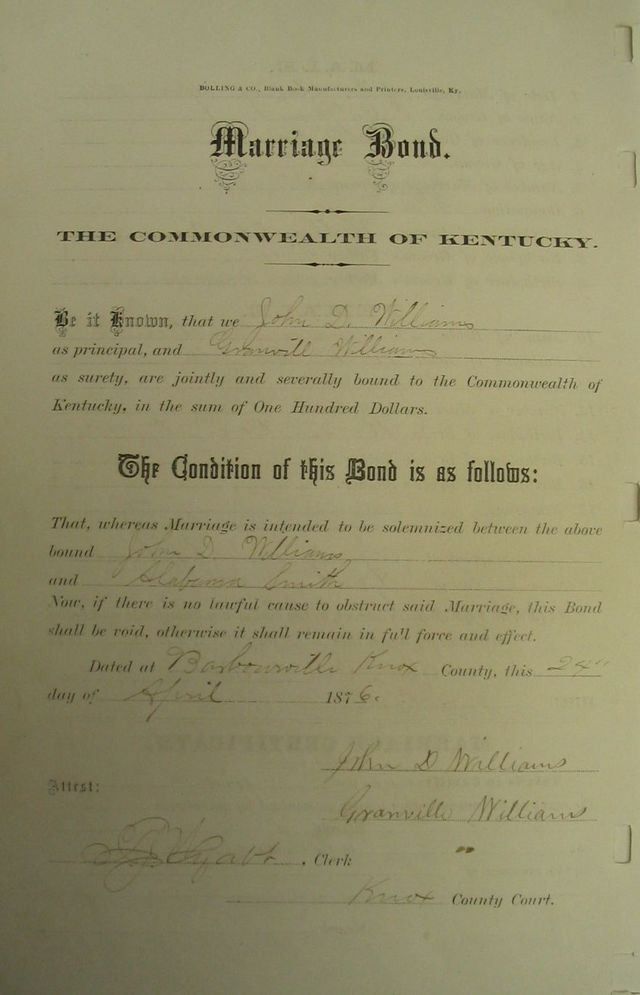 BOLLING & CO., Blank Book Manufacturers and Printers, Louisville, Ky.
Marriage Bond.
THE COMMONWEALTH OF KENTUCKY.
Be it Known, that we John D. Williams
as principal, and Granvill Williams
as surety, are jointly and severally bound to the Commonwealth of
Kentucky, in the sum of One Hundred Dollars.
The Condition of this Bond is as follows:
That, whereas Marriage is intended to be solemnized between the above
bound John D. Williams
and Alabama Smith
Now, if there is no lawful cause to obstruct said Marriage, this Bond
shall be void, otherwise it shall remain in full force and effect.
Dated at Barbourville Knox County, this 24"
day of April 1876.
John D Williams
Attest:
Granville Williams
, Clerk "
Knox County Court.